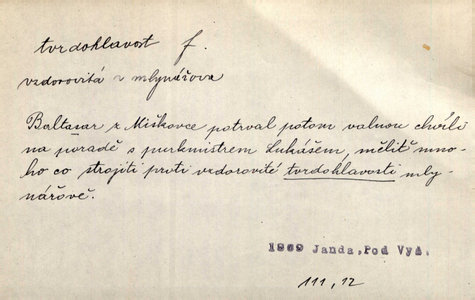 tvrdohlavost f.
vzdorovitá v mlynářova
Baltazar z Miškovce potrval potom valnou chvíli
na poradě s purkmistrem Lukášem, měliť mno-
ho co strojiti proti vzdorovité tvrdohlavosti mly-
nářově.
1909 Janda, Pod Vyš.
111, 12